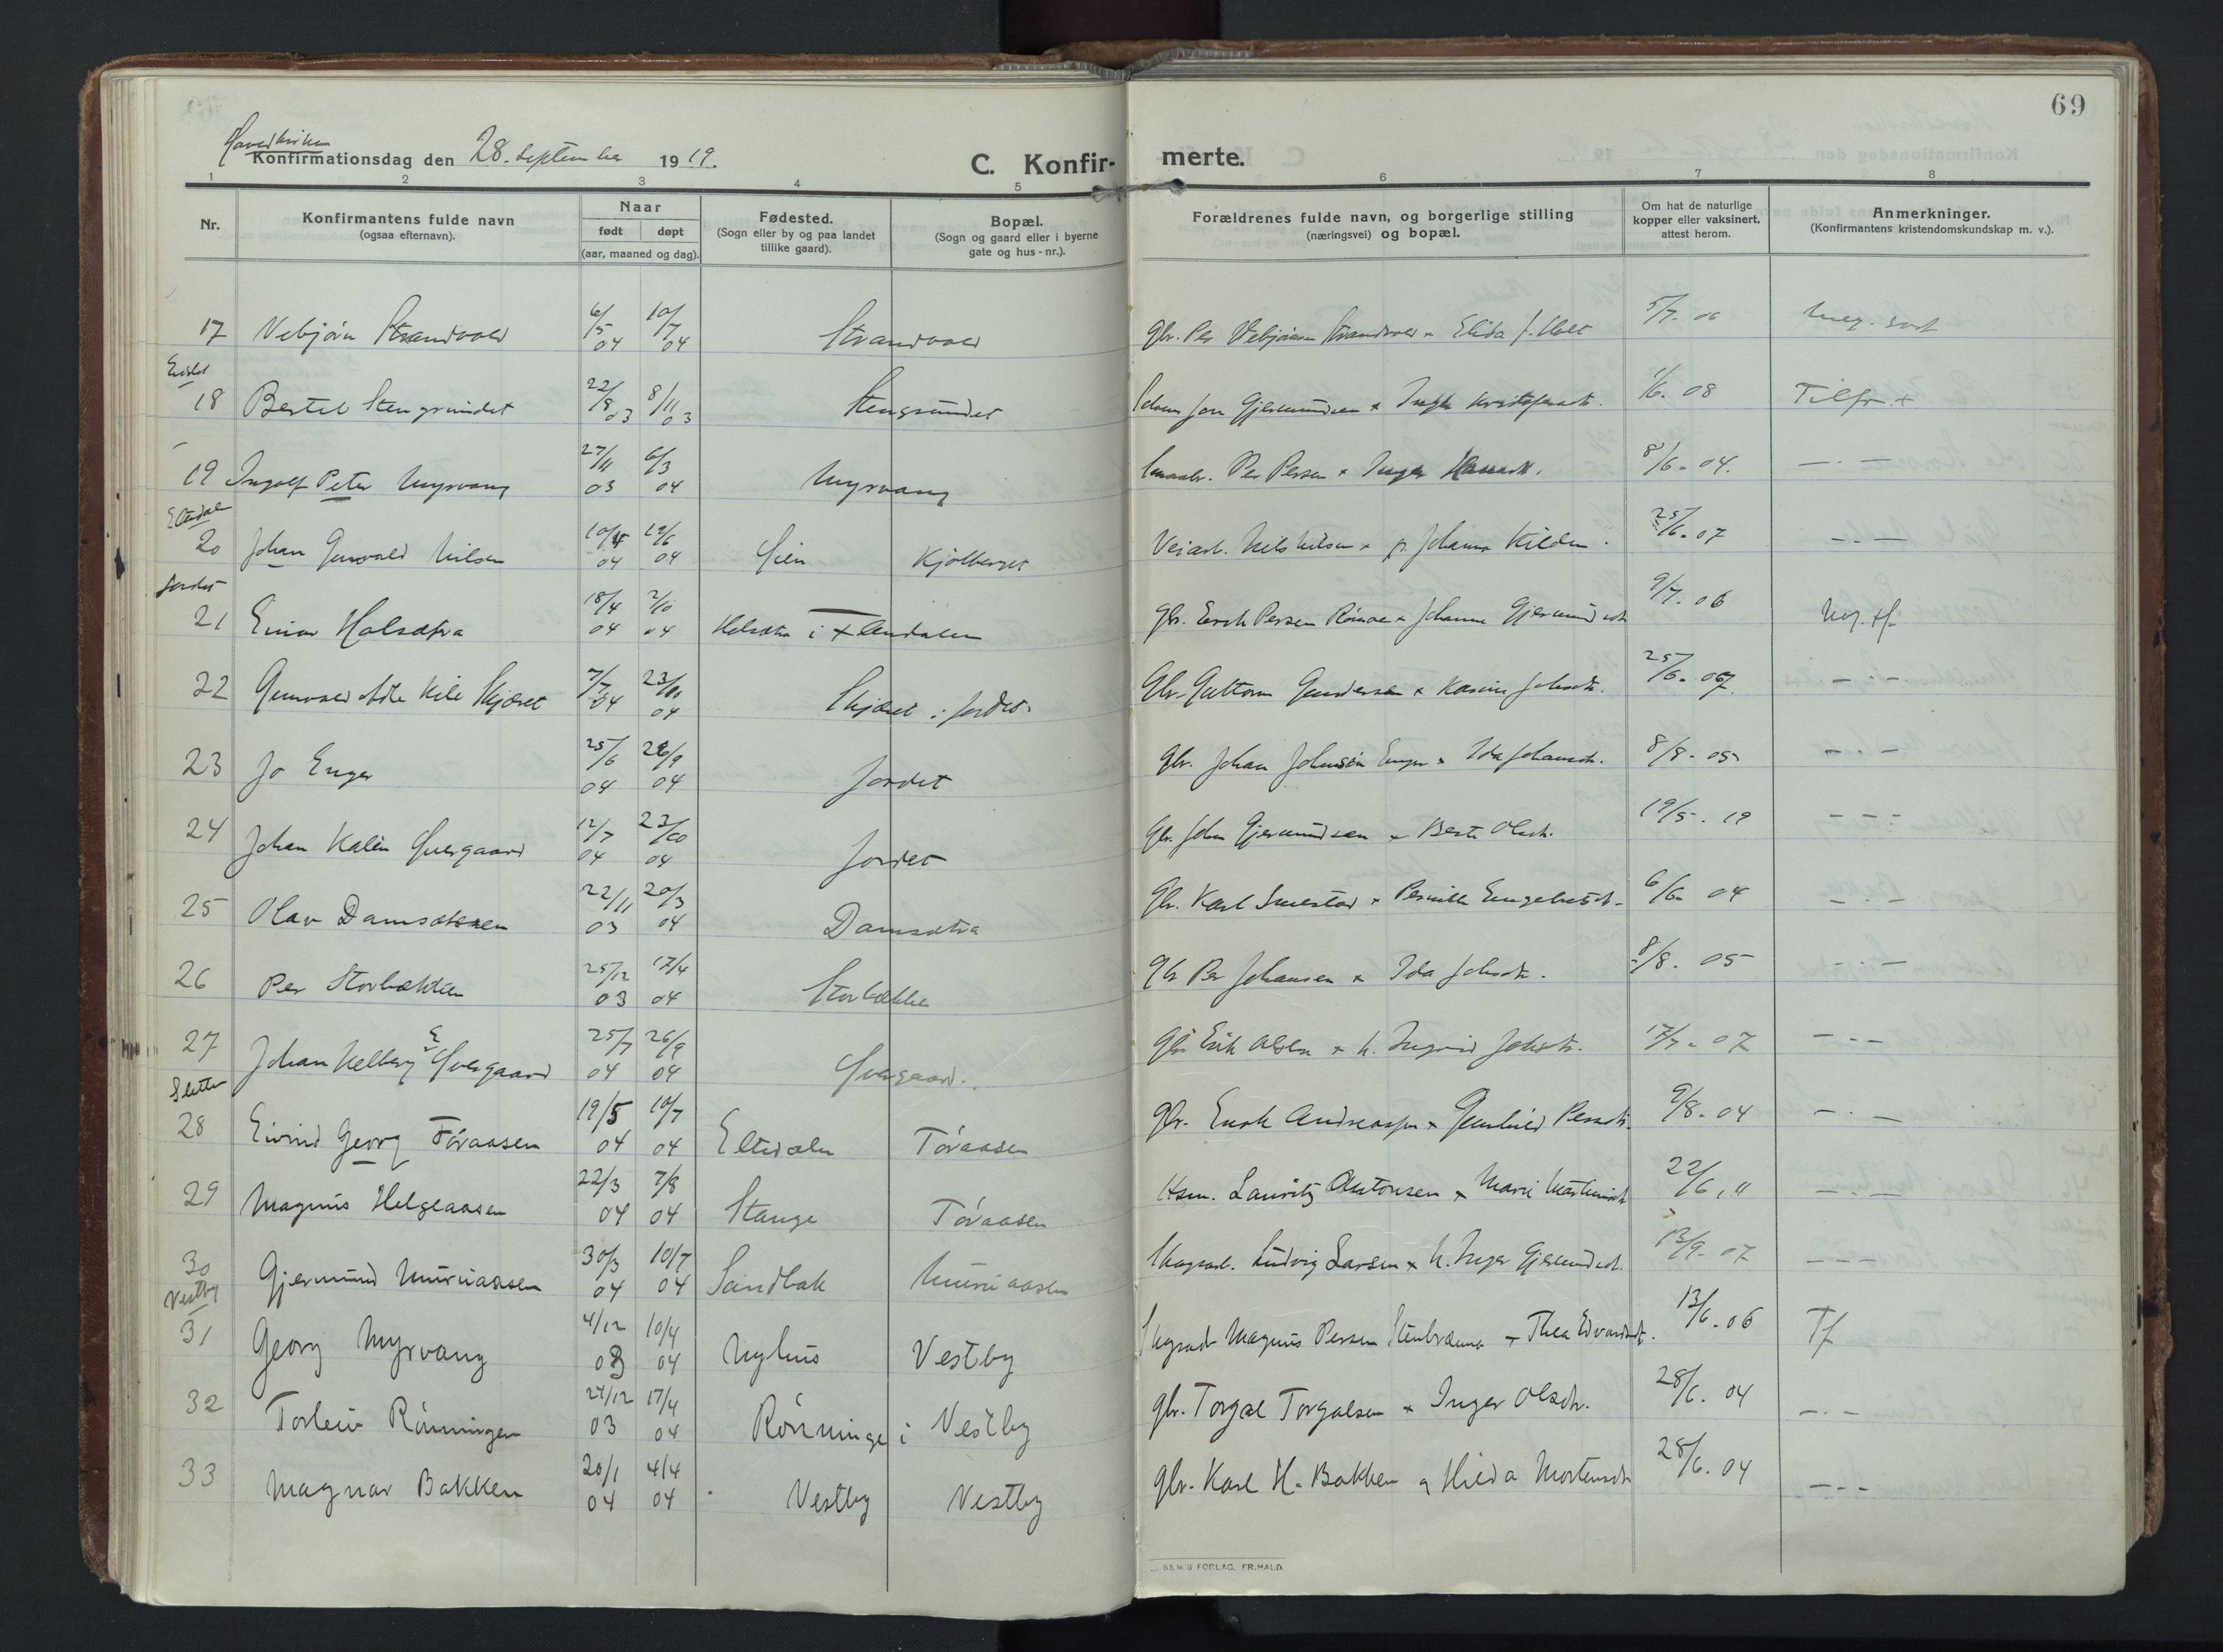 69
Hovedkirken
Konfirmationsdag den 28. september 1919.
C. Konfirmerte.
1 2 3 4 5 6 7 8
Nr.
Konfirmantens fulde navn
(ogsaa efternavn).
Naar
født døpt
(aar, maaned og dag).
Fødested.
(Sogn eller by og paa landet
tillike gaard).
Bopæl.
(Sogn og gaard eller i byerne
gate og hus-nr.).
Forældrenes fulde navn, og borgerlige stilling
(næringsvei) og bopæl.
Om hat de naturlige
kopper eller vaksinert,
attest herom.
Anmerkninger.
(Konfirmantens kristendomskundskap m. v.).
17 Vebjørn Strandvold 6/5 04 10/7 04 Strandvold Gbr. Per Vebjörnsen Strandvold × Elida J. Holt 5/7. 06 Meg. godt
18 Bertel Stengrundet 22/8 03 8/11 03 Stengrundet Jon Gjermundsen × Inger Kristofersdt. 1/6. 08 Tilfr. +
19 Ingolf Peter Myrvang 27/11 03 6/3 04 Myrvang Per Persen × Inger 8/6. 04. — . —
Eltdal
20 Johan Gunvald Nilsen 10/4 04 19/6 04 Lien Kjølberget Veiarb. Nils Nilsen × Johanna Kilden. 25/6. 07 — . —
Jordet
21 Einar Holsætra 18/4 04 2/10 04 Holsætra i Ltandalen Gbr. Erik Persen × Johanne Gjermundsdt 9/7. 06 Meg. tf.
22 Gunvald Atle Kile Skjæret 7/7 04 23/10 04 Skjæret i Jordet. Gbr. Guttorm Gundersen × Johnsdt. 25/6. 07. — . —
23 Jo Enger 25/6 04 26/9 04 Jordet Gbr. Johan Johnsen Enger × Ida Johansdt. 8/8. 05 — . —
24 Johan Kalin Øvergaard 12/7 04 23/10 04 Jordet Gbr. John Gjermundsen × Berte Olsdt. 19/5. 19 — - —
25 Olav Damsæteren 22/11 03 20/3 04 Damsætra Gbr. Karl × Pernille Engebretsdt. 6/6. 04 — . —
26 Per Storbækken 25/12 03 17/4 04 Storbækken Gbr Per Johansen × Ida Johnsdt. 8/8. 05 — . —
27 Johan Kelberg E Øvergaard 25/7 04 26/9 04 Øvergaard. Gbr Erik Olsen × h. Ingrid Johsdt. 17/7. 07 — . —
Sletten
28 Eivind Georg Töraasen 19/5 04 10/7 04 Eltdalen Töraasen Gbr. Enok Andreassen × Gunhild Persdt. 9/8. 04 — . —
29 Magnus Helgeaasen 22/3 04 7/8 04 Stange Töraasen Hsm. Lauritz Antonsen × Marie Martinsdt 22/6, 11 — . —
30 Gjermund Muruaasen 30/3 04 10/7 04 Sandbak Muruaasen Skogsarb. Ludvig Larsen × h. Inger Gjermundsdt. 13/9. 07 — - —
Vestby
31 Georg Myrvang 4/12 03 10/4 04 Nyhus Vestby Skogsarb Magnus Persen × Thea Edvardsdt. 13/6. 06 Tf
32 Torleiv Rönningen 24/12 03 17/4 04 Rönninge i Vestby gbr. Torgal Torgalsen × Inger Olsdtr. 28/6. 04 — . —
33 Magnar Bakken 20/1 04 4/4 04 Vestby Vestby gbr. Karl H. Bakken og Hilda Mortensdt 28/6. 04 — - —
SEM'S FORLAG, FR.HALD.